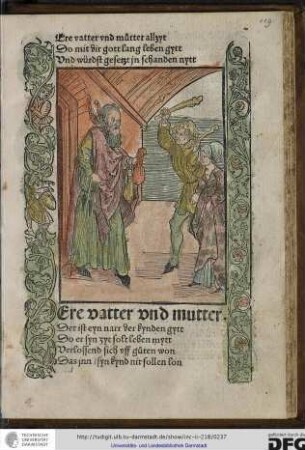 Ere vatter vnd můtter allzyt
Do mit dir gott lang leben gytt
Vnd würdst gesetzt jn schanden nytt
Ere vatter vnd mutter.
Der ist eyn narr der kynden gytt
Do er syn zyt solt leben mytt
Verlossend sich vff gůten won
Das jnn syn kynd nit sollen lon
http://tudigit.ulb.tu-darmstadt.de/show/inc-iv-218/0237
Universitäts- und Landesbibliothek Darmstadt
TECHNISCHE
UNIVERSITÄT
DARMSTADT
gefördert durch die
DFG